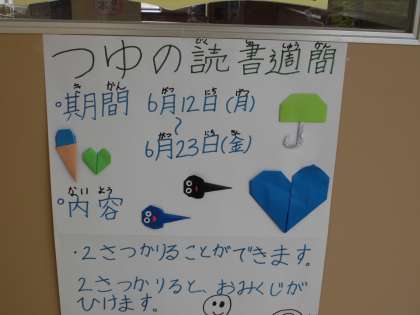 つゆの読書週間
期間 6月12日(月)
〜
6月23日(金)
内容
・2さつかりることができます。
2さつかりると、おみくじが
ひけます。